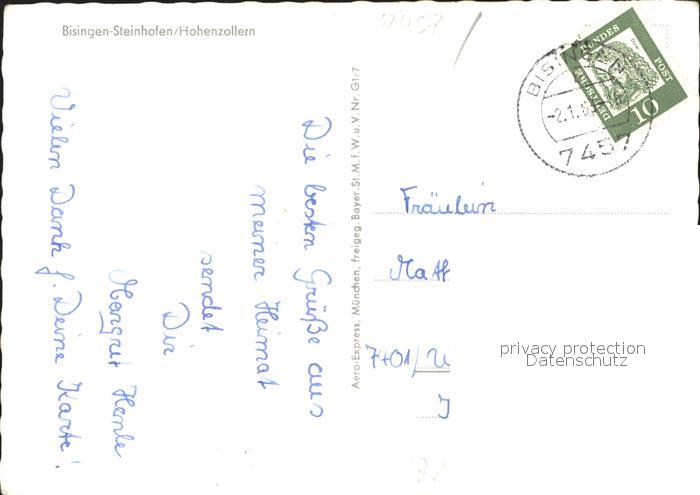 Bisingen-Steinhofen/Hohenzollern
Die besten Grüße aus
meiner Heimat
sendet
Dir
Margret Henle
Vielen Dank f. Deine Karte!
Aero-Express, München, freigeg. Bayer. St. M. f. W. u. V. Nr. G1/7
DEUTSCHE BUNDESPOST
10
BISINGEN
-2.1.
7457
Fräulein
7401/
privacy protection
Datenschutz